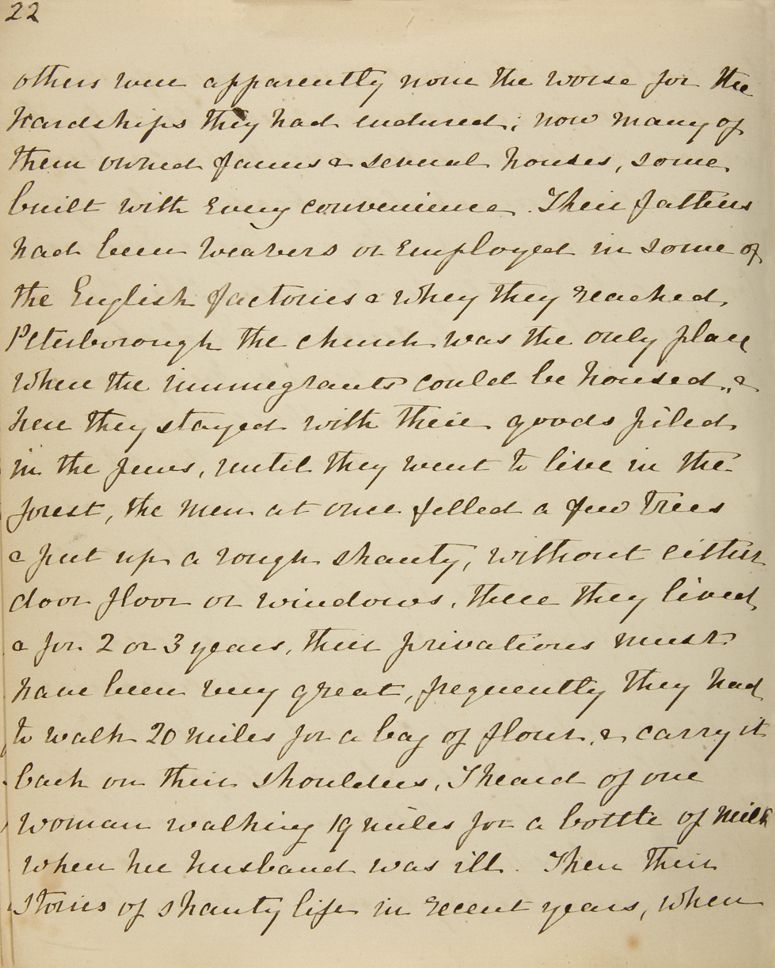 22
others were apparently none the worse for the
hardships they had endured; now many of
them owned farms & several houses, some
built with every convenience. Their fathers
had been weavers or employed in some of
the English factories & whey they reached
Peterborough the church was the only place
where the immegrants could be housed, &
here they stayed with their goods piled
in the pews, until they went to live in the
forest, the men at once felled a few trees
& put up a rough shanty, without either
door floor or windows, there they lived
& for 2 or 3 years, their privations must
have been very great, frequently they had
to walk 20 miles for a bag of flour, & carry it
back on their shoulders, I heard of one
woman walking 19 miles for a bottle of milk
when her husband was ill. Then their
stories of shanty life in recent years, when